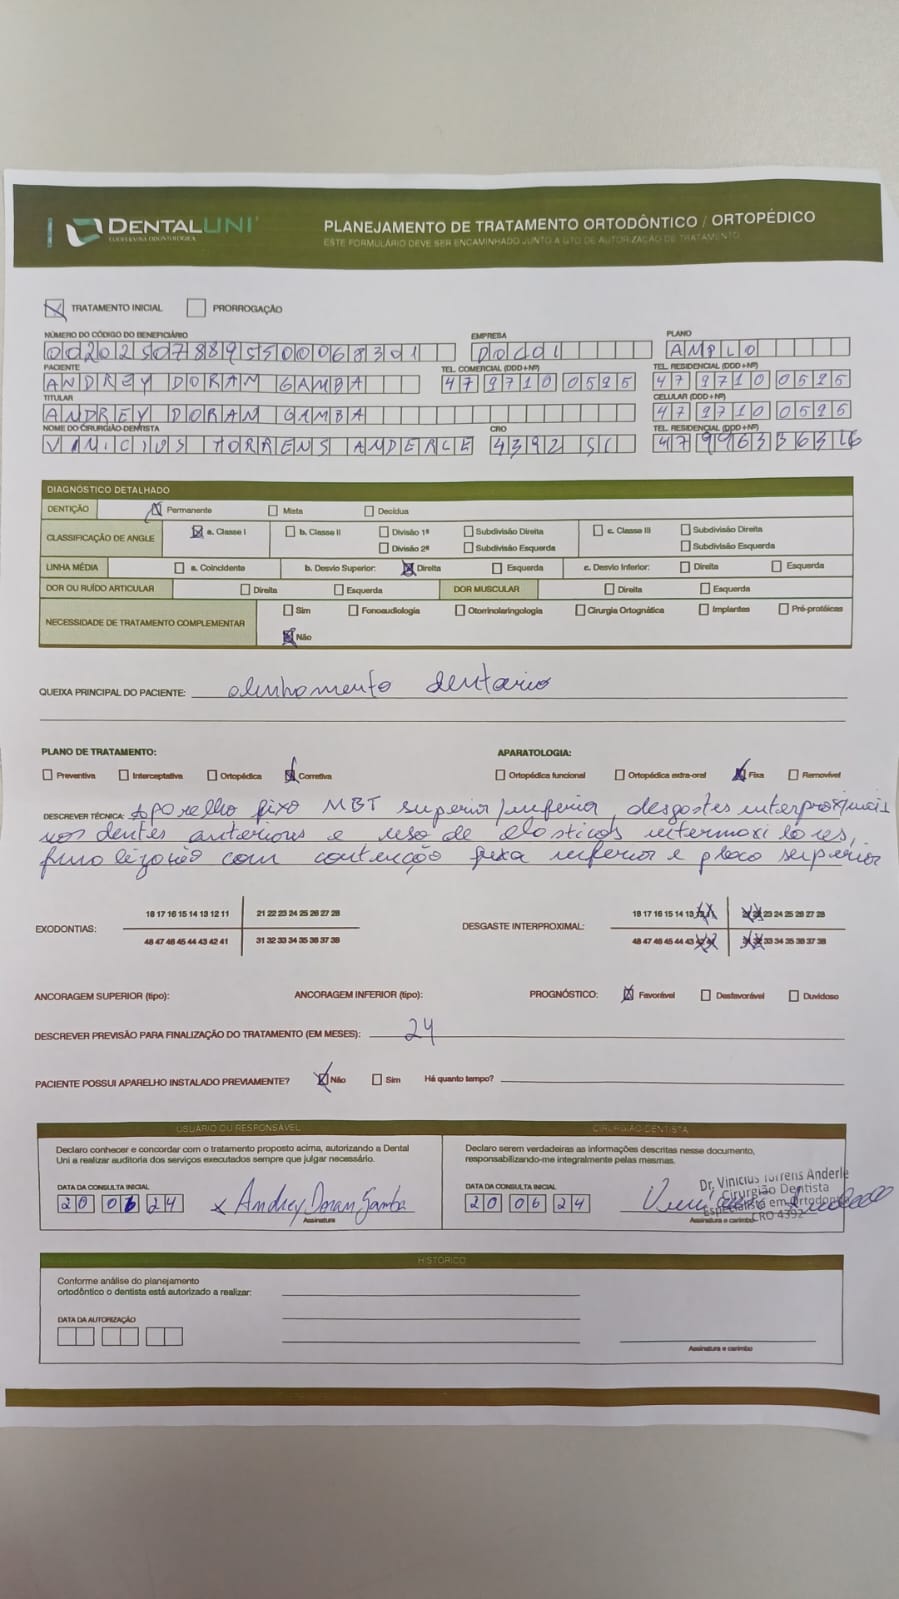 DENTALUNI
COOPERATIVA ODONTOLÓGICA
PLANEJAMENTO DE TRATAMENTO ORTODÔNTICO / ORTOPÉDICO
ESTE FORMULÁRIO DEVE SER ENCAMINHADO JUNTO A GTO DE AUTORIZAÇÃO DE TRATAMENTO
TRATAMENTO INICIAL PRORROGAÇÃO
NÚMERO DO CÓDIGO DO BENEFICIÁRIO EMPRESA PLANO
AMPLO
PACIENTE TEL. COMERCIAL (DDD+Nº) TEL. RESIDENCIAL (DDD+Nº)
ANDREY DORAM GAMBA 4797100525 4797100525
TITULAR CELULAR (DDD+Nº)
ANDREY DORAM GAMBA 4797100525
NOME DO CIRURGIÃO-DENTISTA CRO TEL. RESIDENCIAL (DDD+Nº)
VINICIUS TORRENS ANDERLE 4392 SC
DIAGNÓSTICO DETALHADO
DENTIÇÃO Permanente Mista Decídua
CLASSIFICAÇÃO DE ANGLE a. Classe I b. Classe II Divisão 1ª Subdivisão Direita c. Classe III Subdivisão Direita
Divisão 2ª Subdivisão Esquerda Subdivisão Esquerda
LINHA MÉDIA a. Coincidente b. Desvio Superior: Direita Esquerda c. Desvio Inferior: Direita Esquerda
DOR OU RUÍDO ARTICULAR Direita Esquerda DOR MUSCULAR Direita Esquerda
NECESSIDADE DE TRATAMENTO COMPLEMENTAR Sim Fonoaudiologia Otorrinolaringologia Cirurgia Ortognática Implantes Pré-protéicas
Não
QUEIXA PRINCIPAL DO PACIENTE: alinhamento dentario
PLANO DE TRATAMENTO: APARATOLOGIA:
Preventiva Interceptativa Ortopédica Corretiva Ortopédica funcional Ortopédica extra-oral Fixa Removível
DESCREVER TÉCNICA: Aparelho fixo MBT superior/inferior, desgastes interproximais
nos dentes anteriores e uso de elasticos intermaxilares,
finalização com contenção fixa inferior e placa superior
18 17 16 15 14 13 12 11 21 22 23 24 25 26 27 28 18 17 16 15 14 13 12 11 21 22 23 24 25 26 27 28
EXODONTIAS: DESGASTE INTERPROXIMAL:
48 47 46 45 44 43 42 41 31 32 33 34 35 36 37 38 48 47 46 45 44 43 42 41 31 32 33 34 35 36 37 38
ANCORAGEM SUPERIOR (tipo): ANCORAGEM INFERIOR (tipo): PROGNÓSTICO: Favorável Desfavorável Duvidoso
DESCREVER PREVISÃO PARA FINALIZAÇÃO DO TRATAMENTO (EM MESES): 24
PACIENTE POSSUI APARELHO INSTALADO PREVIAMENTE? Não Sim Há quanto tempo?
USUÁRIO OU RESPONSÁVEL CIRURGIÃO DENTISTA
Declaro conhecer e concordar com o tratamento proposto acima, autorizando a Dental
Uni a realizar auditoria dos serviços executados sempre que julgar necessário.
Declaro serem verdadeiras as informações descritas nesse documento,
responsabilizando-me integralmente pelas mesmas.
DATA DA CONSULTA INICIAL
20 06 24 x Andrey Doram Gamba
Assinatura
DATA DA CONSULTA INICIAL
20 06 24
Dr. Vinicius Torrens Anderle
Cirurgião Dentista
Especialista em Ortodontia
CRO 4392
Assinatura e carimbo
HISTÓRICO
Conforme análise do planejamento
ortodôntico o dentista está autorizado a realizar:
DATA DA AUTORIZAÇÃO
Assinatura e carimbo